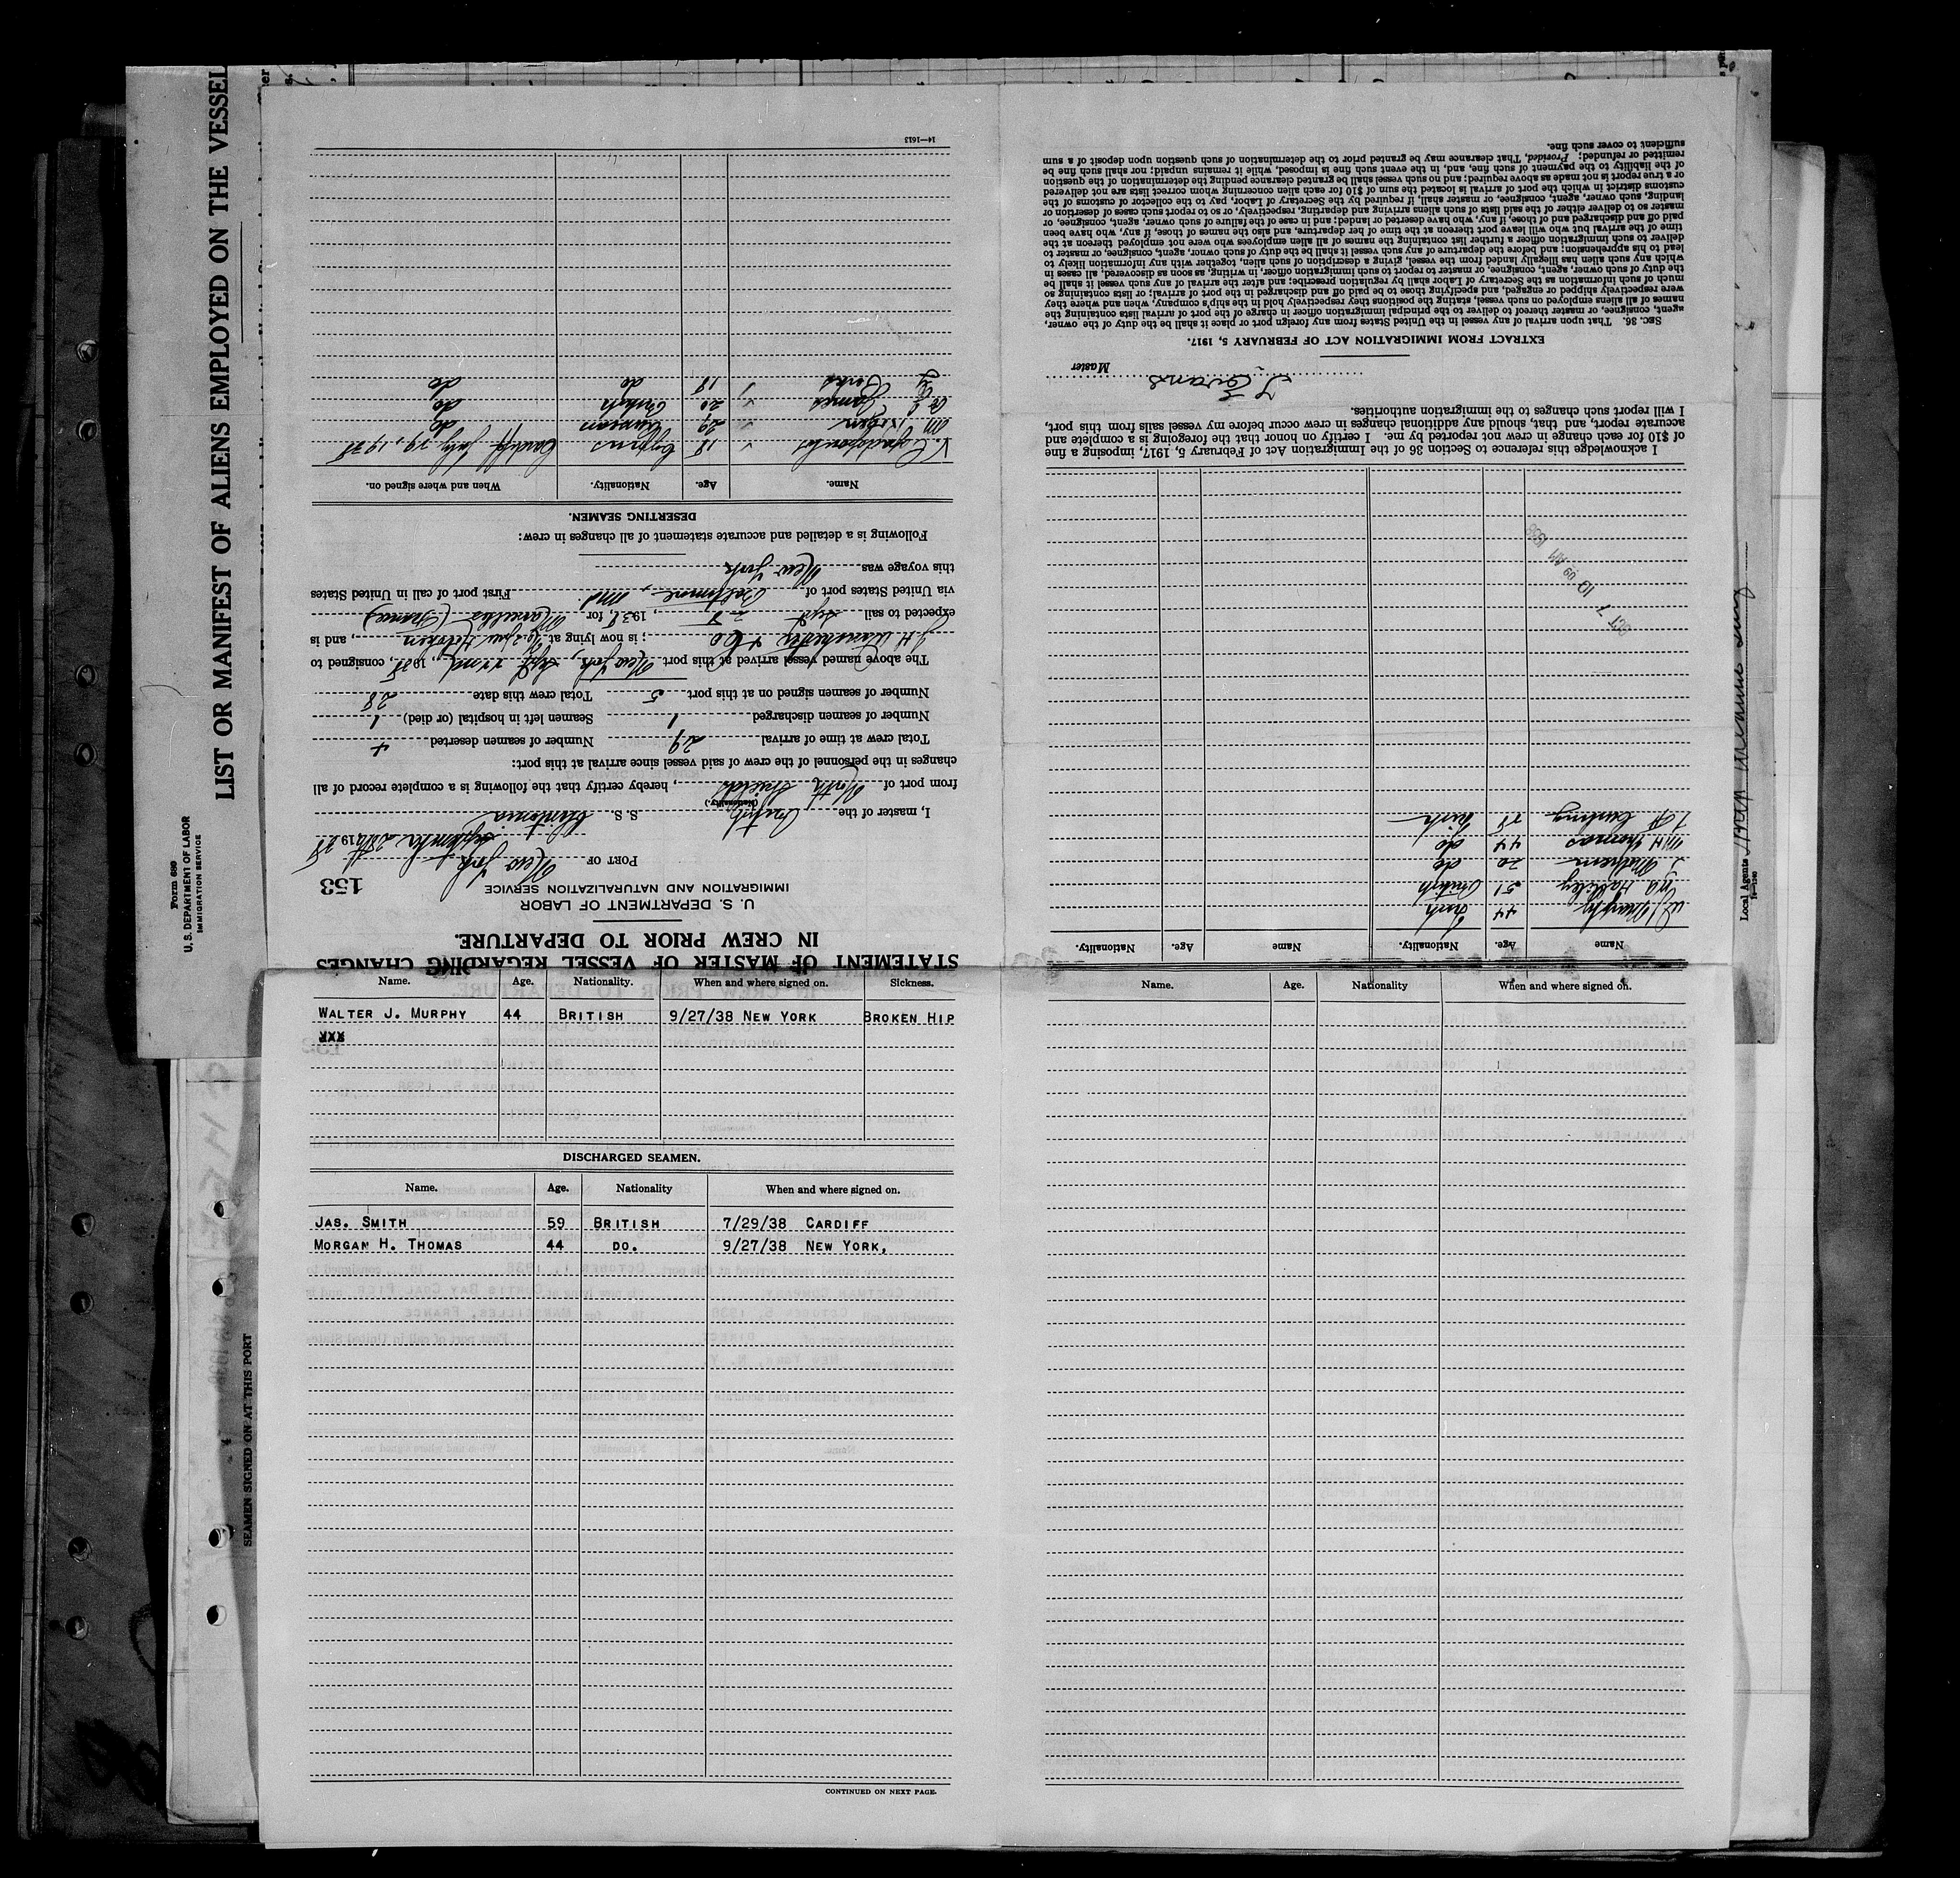 LIST OR MANIFEST OF ALIENS EMPLOYED ON THE VESSEL
Form 689
U. S. DEPARTMENT OF LABOR
IMMIGRATION SERVICE
SEAMEN SIGNED ON AT THIS PORT
Local Agents
STATEMENT OF MASTER OF VESSEL REGARDING CHANGES
IN CREW PRIOR TO DEPARTURE.
U. S. DEPARTMENT OF LABOR
IMMIGRATION AND NATURALIZATION SERVICE
153
PORT OF New York
September 28th 1938
I, master of the British S. S. Clintonia
(Nationality.)
from port of North Shields, hereby certify that the following is a complete record of all
changes in the personnel of the crew of said vessel since arrival at this port:
Total crew at time of arrival 29 Number of seamen deserted 4
Number of seamen discharged 1 Seamen left in hospital (or died) 1
Number of seamen signed on at this port 5 Total crew this date 28
The above named vessel arrived at this port New York, Sept 22nd, 1938, consigned to
J H Winchester & Co ; is now lying at Hoboken, and is
expected to sail Sept 28, 1938, for Marseilles (France)
via United States port of Baltimore, Md. First port of call in United States
this voyage was New York
Following is a detailed and accurate statement of all changes in crew:
DESERTING SEAMEN.
Name. Age. Nationality. When and where signed on.
V. 18 Cyprus Cardiff July 29, 1938
29 do
James 20 British do
18 do do
14—1613
Name Age. Nationality. Name Age. Nationality.
W J Murphy 44 Irish
51 British
20 do
M H Thomas 44 do
Irish
OCT 7 10 09 AM 1938
I acknowledge this reference to Section 36 of the Immigration Act of February 5, 1917, imposing a fine
of $10 for each change in crew not reported by me. I certify on honor that the foregoing is a complete and
accurate report, and that, should any additional changes in crew occur before my vessel sails from this port,
I will report such changes to the immigration authorities.
T. Evans
Master
EXTRACT FROM IMMIGRATION ACT OF FEBRUARY 5, 1917.
SEC. 36. That upon arrival of any vessel in the United States from any foreign port or place it shall be the duty of the owner,
agent, consignee, or master thereof to deliver to the principal immigration officer in charge of the port of arrival lists containing the
names of all aliens employed on such vessel, stating the positions they respectively hold in the ship's company, when and where they
were respectively shipped or engaged, and specifying those to be paid off and discharged in the port of arrival; or lists containing so
much of such information as the Secretary of Labor shall by regulation prescribe; and after the arrival of any such vessel it shall be
the duty of such owner, agent, consignee, or master to report to such immigration officer, in writing, as soon as discovered, all cases in
which any such alien has illegally landed from the vessel, giving a description of such alien, together with any information likely to
lead to his apprehension; and before the departure of any such vessel it shall be the duty of such owner, agent, consignee, or master to
deliver to such immigration officer a further list containing the names of all alien employees who were not employed thereon at the
time of the arrival but who will leave port thereon at the time of her departure, and also the names of those, if any, who have been
paid off and discharged and of those, if any, who have deserted or landed; and in case of the failure of such owner, agent, consignee, or
master so to deliver either of the said lists of such aliens arriving and departing, respectively, or so to report such cases of desertion or
landing, such owner, agent, consignee, or master, shall, if required by the Secretary of Labor, pay to the collector of customs of the
customs district in which the port of arrival is located the sum of $10 for each alien concerning whom correct lists are not delivered
or a true report is not made as above required; and no such vessel shall be granted clearance pending the determination of the question
of the liability to the payment of such fine, and, in the event such fine is imposed, while it remains unpaid; nor shall such fine be
remitted or refunded; Provided, That clearance may be granted prior to the determination of such question upon deposit of a sum
sufficient to cover such fine.
Name. Age. Nationality. When and where signed on. Sickness.
WALTER J. MURPHY 44 BRITISH 9/27/38 NEW YORK BROKEN HIP
DISCHARGED SEAMEN.
Name. Age. Nationality When and where signed on.
JAS. SMITH 59 BRITISH 7/29/38 CARDIFF
MORGAN H. THOMAS 44 DO. 9/27/38 NEW YORK,
CONTINUED ON NEXT PAGE.
Name. Age. Nationality When and where signed on.